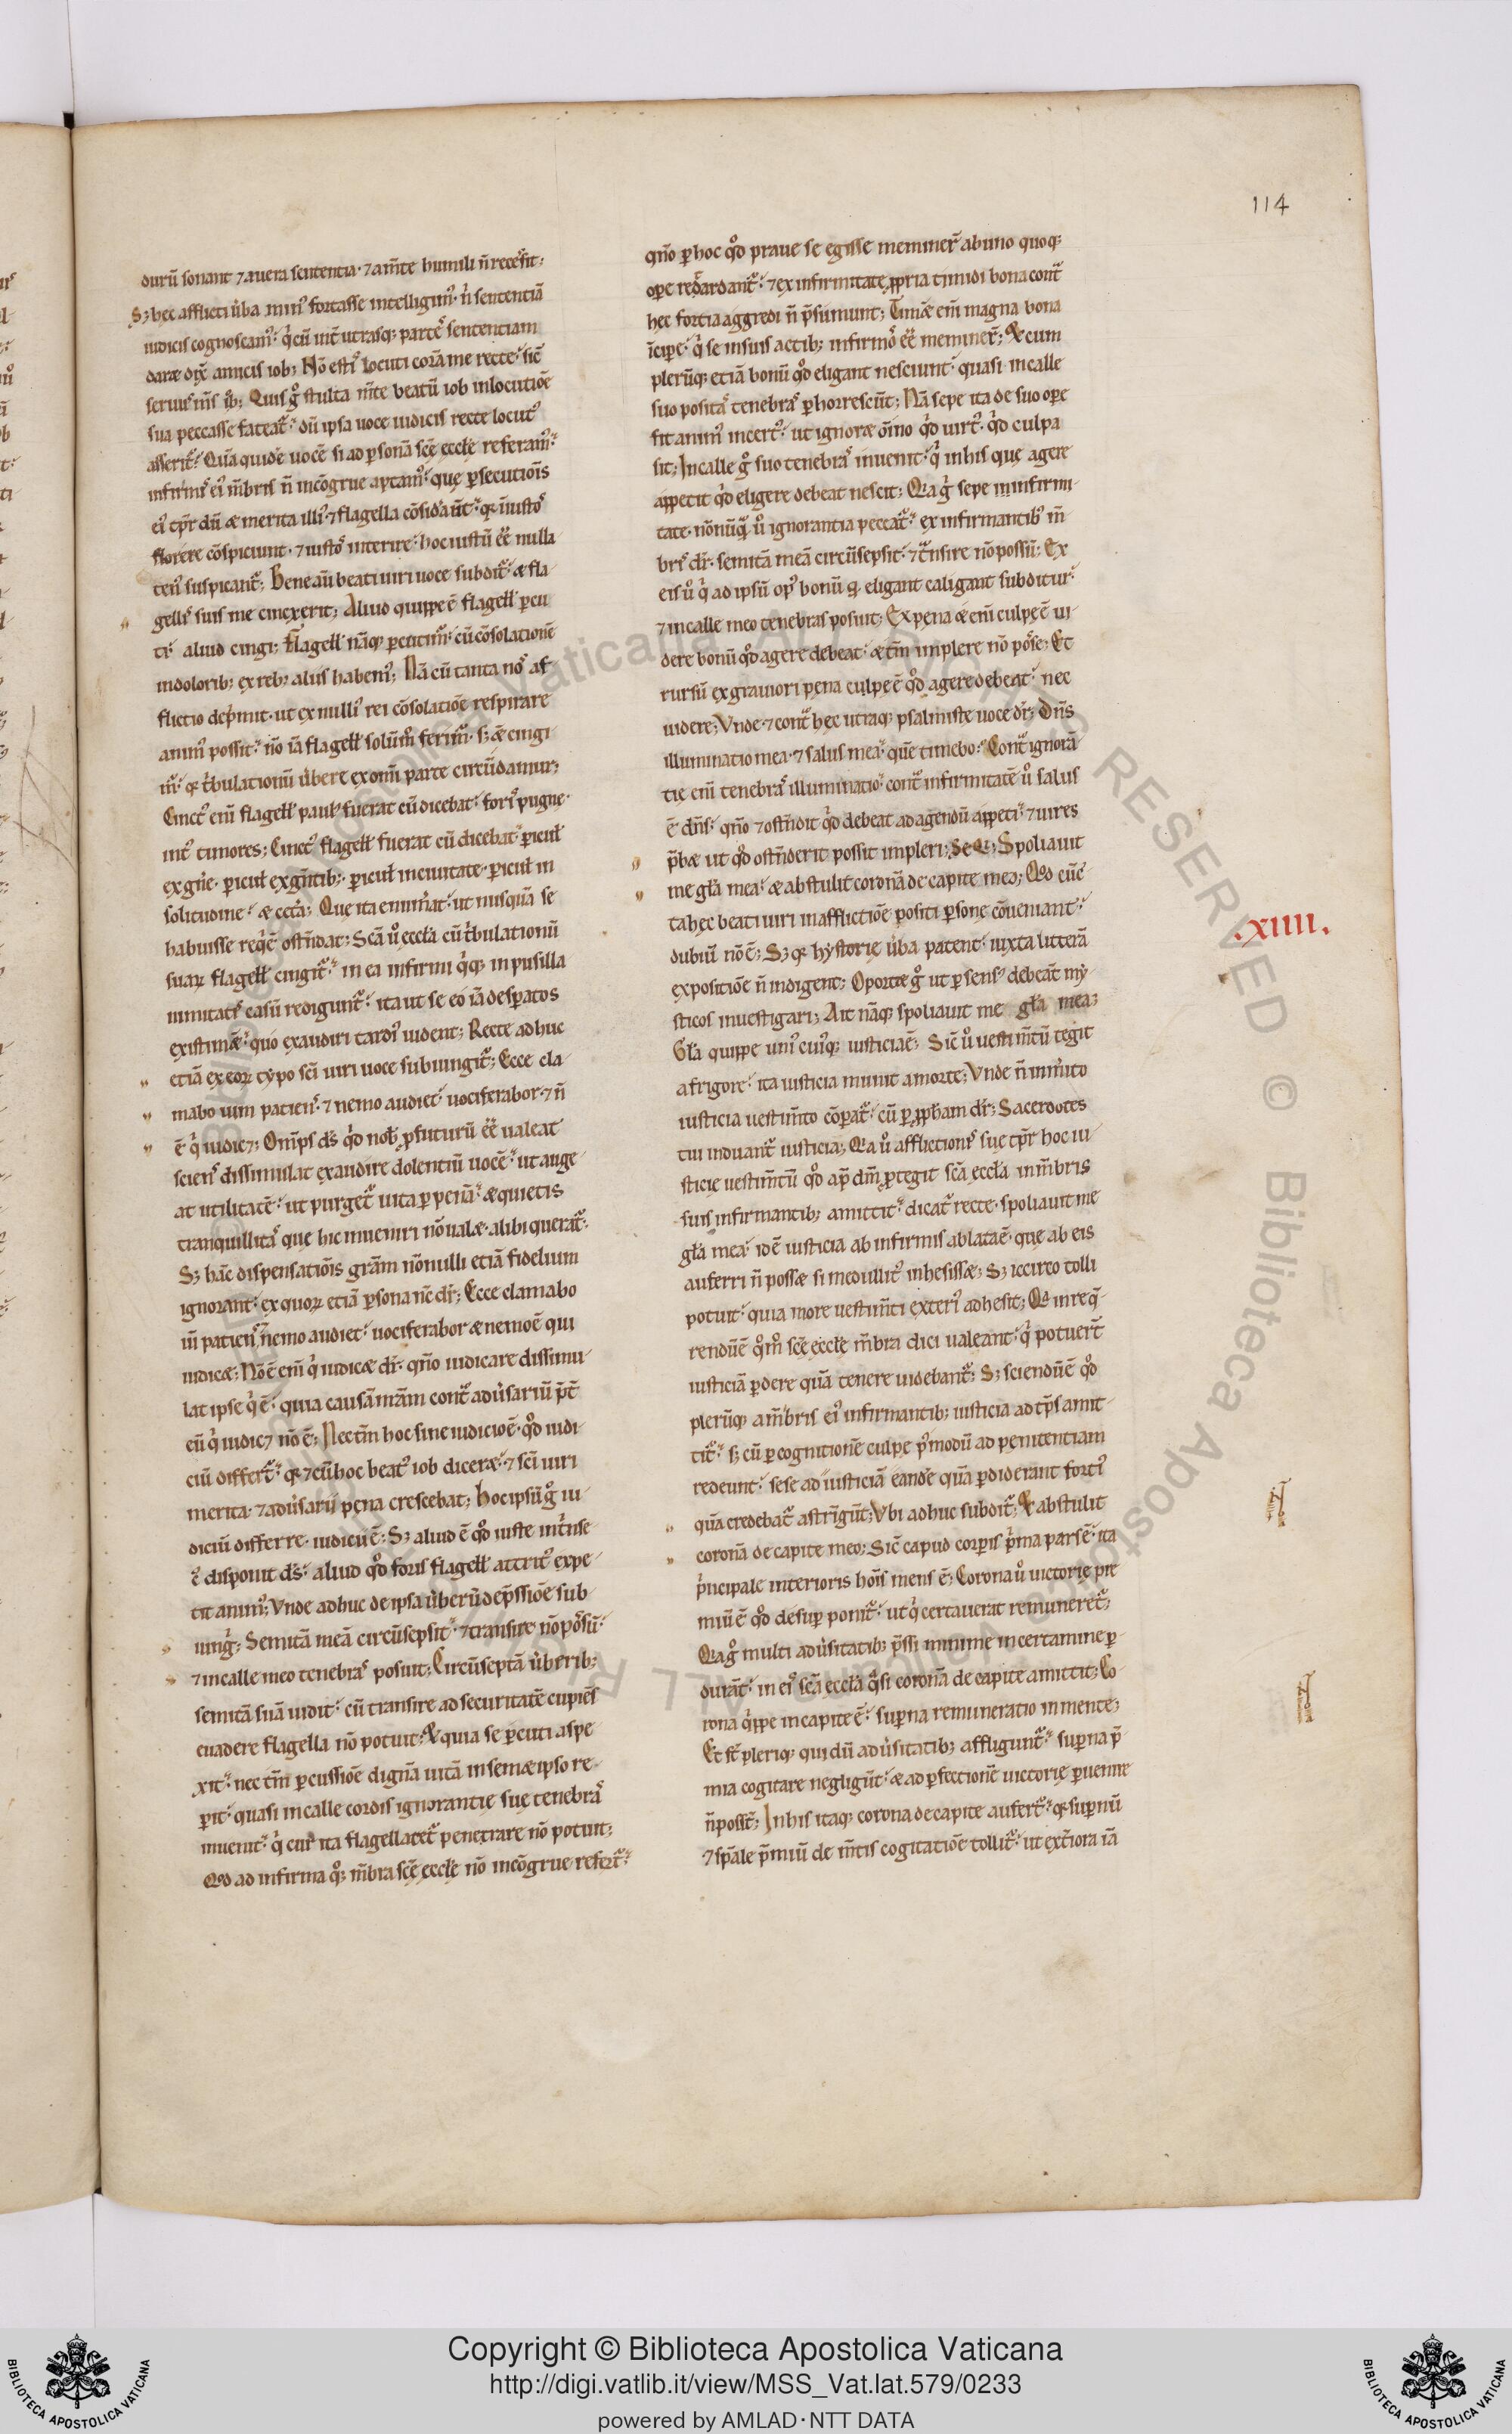 114
durū sonant ⁊ a uera sententia · ⁊ a m̄te humili n̄ recess̄it;
S; hec afflicti u̇ba min᷒ fortasse intelligim᷒ · n̓ sententiā
iudicis cognoscam᷒ · q̓ cū int̄ utrasq; partes sentientiam
daræ dix̄ amicis iob; Nō estis locuti corā me recte · sic̄
seruus m̄s iob; Quis ḡ stulta m̄te beatū iob in locutiōe
sua peccasse fateat᷑ · dū ipsa uoce iudicis recte locut᷒
asserit᷑; Quā quidē uocē si ad ꝑsonā scē ecclę referam᷒
infirmis ei᷒ m̄bris n̄ incōgrue aptam᷒ · quę ꝑsecutiōis
ei᷒ tp̄r dū æ merita illi᷒ · ⁊ flagella cōsiderant · q; iniustos
florere cōspiciunt · ⁊ iustos interire · hoc iustū ee᷑ nulla
ten᷒ suspicant᷑; Bene aū beati uiri uoce subdit᷑ · æ fla
gellis suis me cinxerit; Aliud quippe ē flagell ꝑcu
ti · aliud cingi; Flagell nāq; ꝑcutim᷑ · cū cōsolationē
in dolorib; ex reb; aliis habem᷒; Nā cū tanta nos af
flictio dep̄mit · ut ex nulli᷒ rei cōsolatiōe respirare
anim᷒ possit · nō iā flagell solūm̄ ferim᷑ · s; ǣ cingi
m᷑ · q; t̓bulationū u̇bere ex om̄i parte circūdamur;
Cinct᷒ enī flagell paul᷒ fuerat cū dicebat · foris pugnę ·
int᷒ timores; Cinct᷒ flagell fuerat cū dicebat · ꝑicul
ex gn̄e · ꝑicul ex gn̄tib; · ꝑicul in ciuitate · ꝑicul in
solitudine · æ cet̄a; Que ita enum̄at · ut nusquā se
habuisse req̓ē ost̄ndat; Scā u̓o ecclā cū t̓bulationū
suaꝝ flagell cingit᷑ · in ea infirmi q̓q; in pusilla
nimitatis casū redigunt᷑ · ita ut se eo iā desperatos
existimǣ · quo exaudiri tardi᷒ uident; Recte adhuc
etiā ex eoꝝ typo sc̄i uiri uoce subiungit᷑; Ecce cla
mabo uim patiens · ⁊ nemo audiet · uociferabor · ⁊ n̄
ē q̓ iudicet; Om̄ps ds̄ q̓d nob̄ ꝓfuturū ee᷑ ualeat
sciens dissimulat exaudire dolentiū uocē · ut auge
at utilitatē · ut purget᷑ uita ꝑ penā · æ quietis
tranquillitas que hic inueniri nō ualæ · alibi querat᷑ ·
S; hāc dispensatiōis grām nōnulli etiā fidelium
ignorant · ex quoꝝ etiā ꝑsona nc̄ dr̄; Ecce clamabo
uī patiens nemo audiet · uociferabor æ nemo ē qui
iudicæ; Nō ē enī q̓ iudicæ dr̄ · qn̄o iudicare dissimu
lat ipse q̓ ē · quia causā nrām cont᷑ adu̇sariū p̄t̄
eū q̓ iudicet nō ē; Nec tm̄ hoc sine iudicio ē · q̊d iudi
ciū differt᷑ · q; ⁊ cū hoc beat᷒ iob diceræ · ⁊ sc̄i uiri
merita · ⁊ adu̇sarii pena crescebat; hoc ipsū g̊ iu
diciū differre · iudiciū ē; S; aliud ē q̊d iuste int̓nse
c᷒ disponit ds̄ · aliud q̊d foris flagell attrit᷒ expe
tit anim᷒; Vnde adhuc de ipsa u̇berū dep̄ssiōe sub
iung᷑; Semitā meā circūsepsit · ⁊ transire nō possū ·
⁊ in calle meo tenebras posuit; Circūseptā u̇berib;
semitā suā uidit · cū transire ad securitatē cupiēs
euadere flagella nō potuit; Et quia se ꝑcuti aspe
xit · nec tm̄ ꝑcussiōe dignā uitā in semæipso re
ꝑit · quasi in calle cordis ignorantię suę tenebras
inuenit · q̓ cur ita flagellaret᷑ penetrare nō potuit;
Qd̄ ad infirma q̊q; m̄bra scē ecclę nō incōgrue refert᷑
qn̄o ꝑ hoc q̊d praue se egisse meminer̄ ab uno quoq;
opere redardant᷑ · ⁊ ex infirmitate ꝓpria timidi bona cont᷑
hec fortia aggredi n̄ p̄sumunt; Timǣ enī magna bona
īcipe · q̓ se in suis actib; infirmos ee᷑ meminer̄; Et cum
plerūq; etiā bonū q̊d eligant nesciunt · quasi in calle
suo positas tenebras ꝑhorrescūt; Nā sepe ita de suo opere
fit anim᷒ incert᷒ · ut ignoræ ōino q̓d uirt᷒ · q̓d culpa
sit; In calle g̊ suo tenebras inuenit · q̓ in his quę agere
appetit q̓d eligere debeat nescit; Qa g̊ sepe in infirmi
tate · nōnūq̄ u̓o ignorantia peccat᷑ · ex infirmantib᷒ m̄
bris dr̄ · semitā meā circūsepsit · ⁊ t᷑nsire nō possū; Ex
eis u̓o q̓ ad ipsū op᷒ bonū q; eligant caligant subditur ·
⁊ in calle meo tenebras posuit; Ex pena æ enī culpę ē ui
dere bonū q̊d agere debeat · æ tm̄ implere nō posse; Et
rursū ex grauiori pena culpę ē q̊d agere debeat · nec
uidere; Vnde ⁊ cont᷑ hec utraq; psalmiste uoce dr̄; Dn̄s
illuminatio mea · ⁊ salus mea · quē timebo; Cont᷑ ignorā
tię enī tenebras illuminatio · cont᷑ infirmitatē u̓o salus
ē dn̄s · qn̄o ⁊ ost̄ndit q̓d debeat ad agendū appeti · ⁊ uires
p̄bæ ut q̊d ost̄nderit possit impleri; SEQ; Spoliauit
me glā mea · æ abstulit coronā de capite meo; Qd̄ cūc̄
ta hec beati uiri in afflictiōe positi ꝑsonę cōueniant ·
dubiū nō ē; S; q; hystorię u̇ba patent · iuxta litterā
expositiōe n̄ indigent; Oportæ g̊ ut ꝑ sens᷒ debeāt my
sticos inuestigari; Ait nāq; spoliauit me glā mea;
Glā quippe uni᷒ cui᷒q; iusticia ē; Sic̄ u̓o uestim̄tū tegit
a frigore · ita iusticia munit a morte; Vnde n̄ inmerito
iusticia uestim̄to cōparat᷑ · cū ꝑ ꝓph̄am dr̄; Sacerdotes
tui induant᷑ iusticia; Qa u̓o afflictionis sue tp̄r hoc iu
sticię uestim̄tū q̊d ap̄ dm̄ ꝓtegit scā ecclā in m̄bris
suis infirmantib; amittit · dicat᷑ recte · spoliauit me
glā mea · idē iusticia ab infirmis ablata ē · que ab eis
auferri n̄ possæ si medullit᷒ inhesissæ; S; iccirco tolli
potuit · quia more uestim̄ti exteri᷒ adhesit; Qd̄ in re q̄
rendū ē q̊m̊ scē ecclę m̄bra dici ualeant · q̓ potuer̄t
iusticiā ꝑdere quā tenere uidebant᷑; S; sciendū ē q̊d
plerūq; a m̄bris ei᷒ infirmantib; iusticia ad tp̄s amit
tit᷑ · s; cū ꝑ cognitionē culpe p᷒modū ad penitentiam
redeunt · sese ad iusticiā eandē quā ꝑdiderant forti᷒
quā credebat᷑ astrīgūt; Vbi adhuc subdit᷑; Et abstulit
coronā de capite meo; Sic̄ capud corꝑis p̓ma pars ē · ita
p̓ncipale interioris hōis mens ē; Corona u̓o uictorię prę
miū ē q̊d desuꝑ ponit᷑ · ut q̓ certauerat remuneret᷑;
Qa g̊ multi adu̇sitatib; p̄ssi minime in certamine ꝑ
durāt · in eis scā ecclā q̓si coronā de capite amittit; Co
rona q̓ppe in capite ē · suꝑna remuneratio in mente;
Et st̄ pleriq; qui dū adu̇sitatib; affligunt᷑ · suꝑna p̄
mia cogitare negligūt · æ ad ꝑfectionē uictorię ꝑuenire
n̄ posst̄; In his itaq; corona de capite aufert᷑ · q; suꝑnū
⁊ sp̄ale p̄miū de m̄tis cogitatiōe tollit᷑ · ut ext̓iora iā
.XIIII.
Copyright © Biblioteca Apostolica Vaticana
http://digi.vatlib.it/view/MSS_Vat.lat.579/0233
powered by AMLAD·NTT DATA
BIBLIOTECA APOSTOLICA VATICANA
BIBLIOTECA APOSTOLICA VATICANA